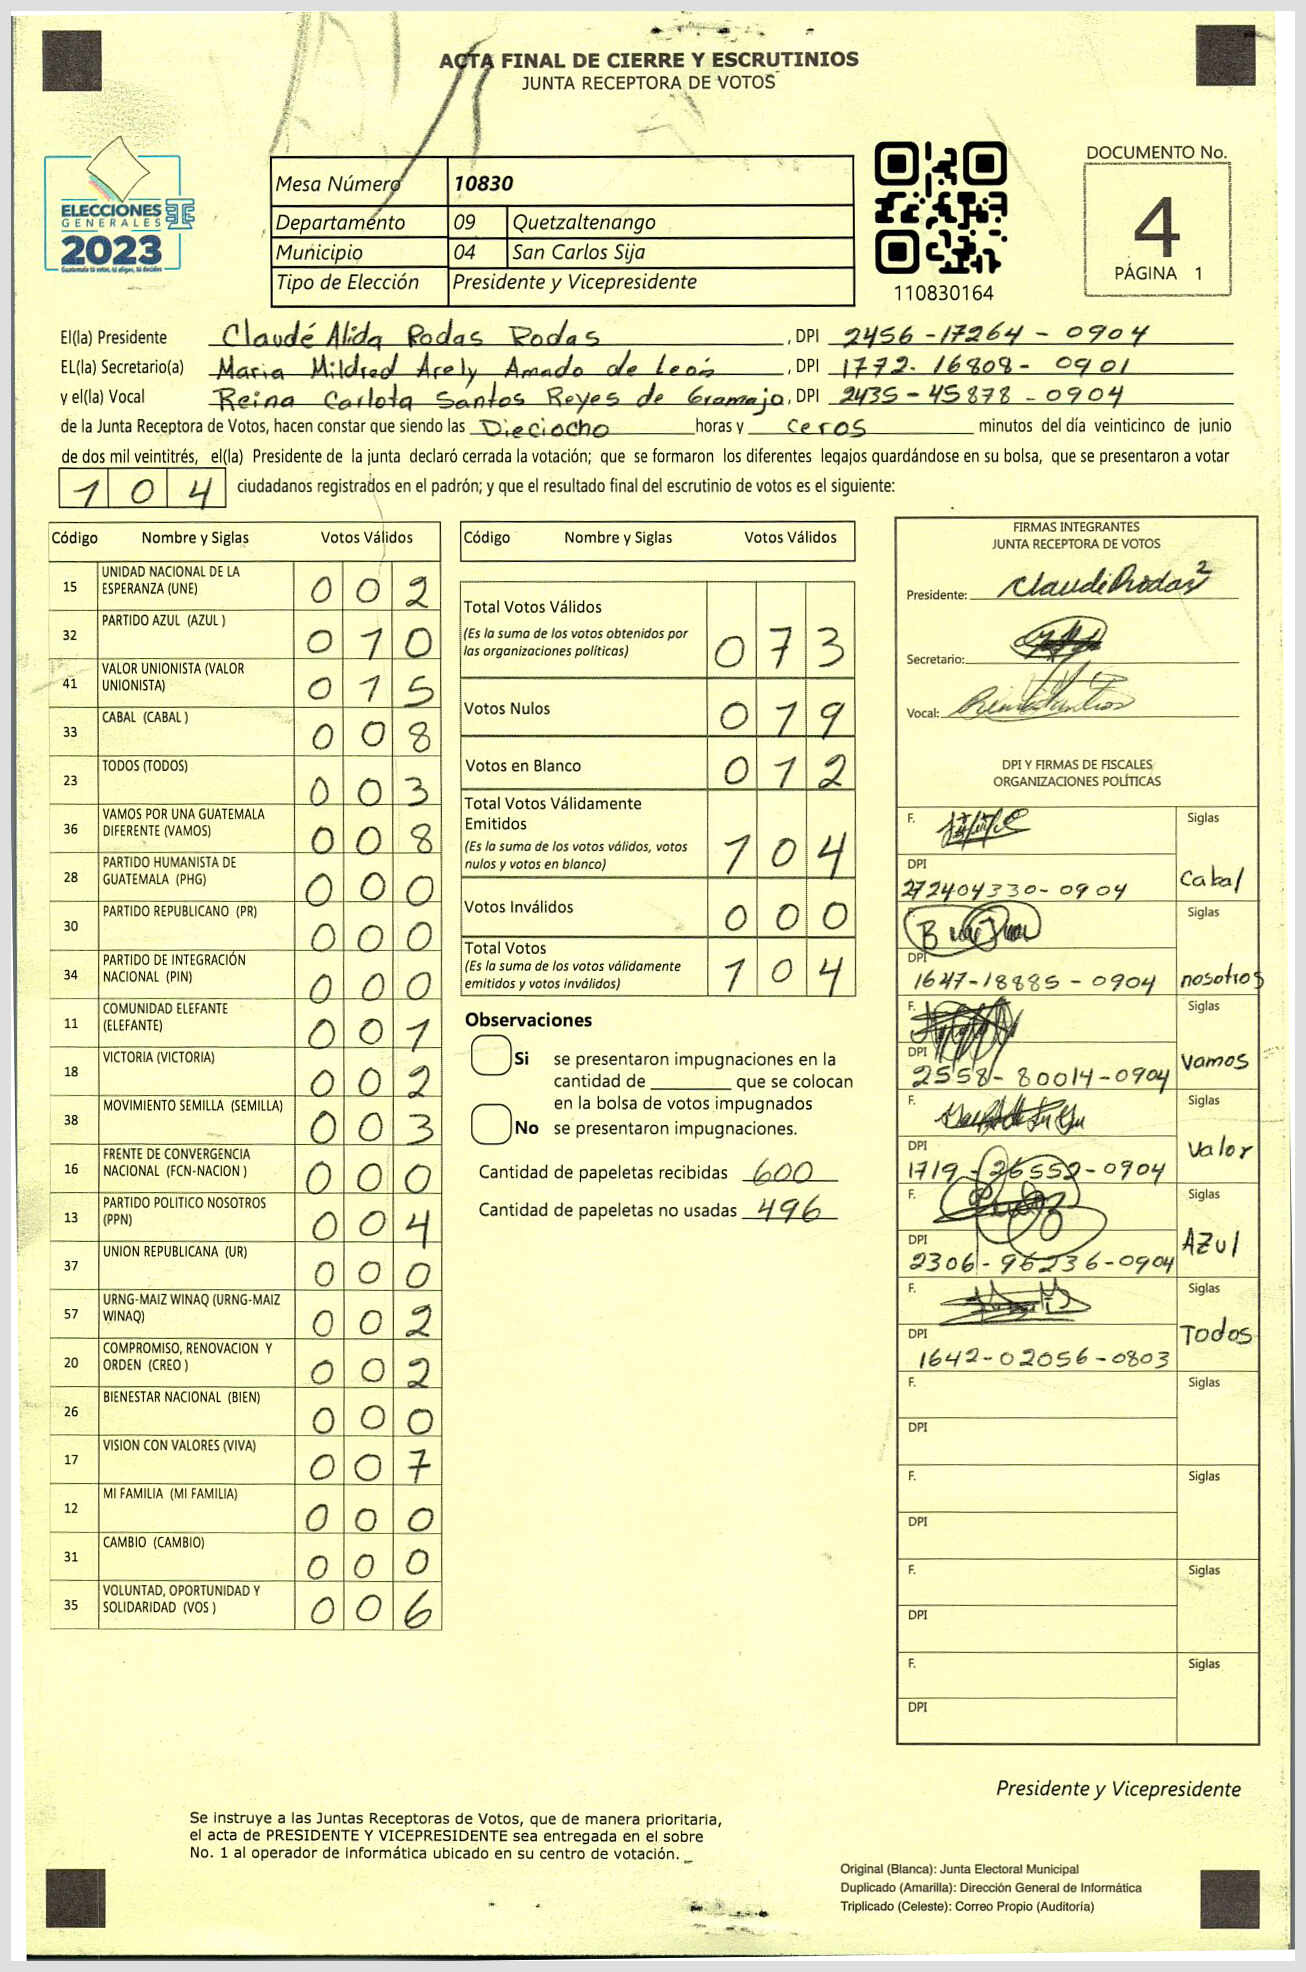 ACTA FINAL DE CIERRE Y ESCRUTINIOS
JUNTA RECEPTORA DE VOTOS
ELECCIONES
GENERALES
2023
Mesa Número 10830
Departamento 09 Quetzaltenango
Municipio 04 San Carlos Sija
Tipo de Elección Presidente y Vicepresidente
110830164
DOCUMENTO No.
4
PÁGINA 1
El(la) Presidente Claudé Alida Rodas Rodas, DPI 2456-17264-0904
EL(la) Secretario(a) Maria Mildred Arely Amado de León, DPI 1772-16808-0901
y el(la) Vocal Reina Carlota Santos Reyes de Gramajo, DPI 2435-45878-0904
de la Junta Receptora de Votos, hacen constar que siendo las Dieciocho horas y ceros minutos del día veinticinco de junio
de dos mil veintitrés, el(la) Presidente de la junta declaró cerrada la votación; que se formaron los diferentes legajos guardándose en su bolsa, que se presentaron a votar
104 ciudadanos registrados en el padrón; y que el resultado final del escrutinio de votos es el siguiente:
Código Nombre y Siglas Votos Válidos
15 UNIDAD NACIONAL DE LA
ESPERANZA (UNE) 002
32 PARTIDO AZUL (AZUL ) 010
41 VALOR UNIONISTA (VALOR
UNIONISTA) 015
33 CABAL (CABAL ) 008
23 TODOS (TODOS) 003
36 VAMOS POR UNA GUATEMALA
DIFERENTE (VAMOS) 008
28 PARTIDO HUMANISTA DE
GUATEMALA (PHG) 000
30 PARTIDO REPUBLICANO (PR) 000
34 PARTIDO DE INTEGRACIÓN
NACIONAL (PIN) 000
11 COMUNIDAD ELEFANTE
(ELEFANTE) 001
18 VICTORIA (VICTORIA) 002
38 MOVIMIENTO SEMILLA (SEMILLA) 003
16 FRENTE DE CONVERGENCIA
NACIONAL (FCN-NACION ) 000
13 PARTIDO POLITICO NOSOTROS
(PPN) 004
37 UNION REPUBLICANA (UR) 000
57 URNG-MAIZ WINAQ (URNG-MAIZ
WINAQ) 002
20 COMPROMISO, RENOVACION Y
ORDEN (CREO ) 002
26 BIENESTAR NACIONAL (BIEN) 000
17 VISION CON VALORES (VIVA) 007
12 MI FAMILIA (MI FAMILIA) 000
31 CAMBIO (CAMBIO) 000
35 VOLUNTAD, OPORTUNIDAD Y
SOLIDARIDAD (VOS ) 006
Código Nombre y Siglas Votos Válidos
Total Votos Válidos
(Es la suma de los votos obtenidos por
las organizaciones políticas) 073
Votos Nulos 019
Votos en Blanco 012
Total Votos Válidamente
Emitidos
(Es la suma de los votos válidos, votos
nulos y votos en blanco) 104
Votos Inválidos 000
Total Votos
(Es la suma de los votos válidamente
emitidos y votos inválidos) 104
Observaciones
Si se presentaron impugnaciones en la
cantidad de ________ que se colocan
en la bolsa de votos impugnados
No se presentaron impugnaciones.
Cantidad de papeletas recibidas 600
Cantidad de papeletas no usadas 496
FIRMAS INTEGRANTES
JUNTA RECEPTORA DE VOTOS
Presidente:
Secretario:
Vocal:
DPI Y FIRMAS DE FISCALES
ORGANIZACIONES POLÍTICAS
F. Siglas
DPI Cabal
272404330-0904
F. Siglas
DPI
1647-18885-0904 nosotros
F. Siglas
DPI Vamos
2558-80014-0904
F. Siglas
DPI Valor
1719-26552-0904
F. Siglas
DPI AZUl
2306-96236-0904
F. Siglas
DPI Todos
1642-02056-0803
F. Siglas
DPI
F. Siglas
DPI
F. Siglas
DPI
F. Siglas
DPI
Presidente y Vicepresidente
Se instruye a las Juntas Receptoras de Votos, que de manera prioritaria,
el acta de PRESIDENTE Y VICEPRESIDENTE sea entregada en el sobre
No. 1 al operador de informática ubicado en su centro de votación.
Original (Blanca): Junta Electoral Municipal
Duplicado (Amarilla): Dirección General de Informática
Triplicado (Celeste): Correo Propio (Auditoría)